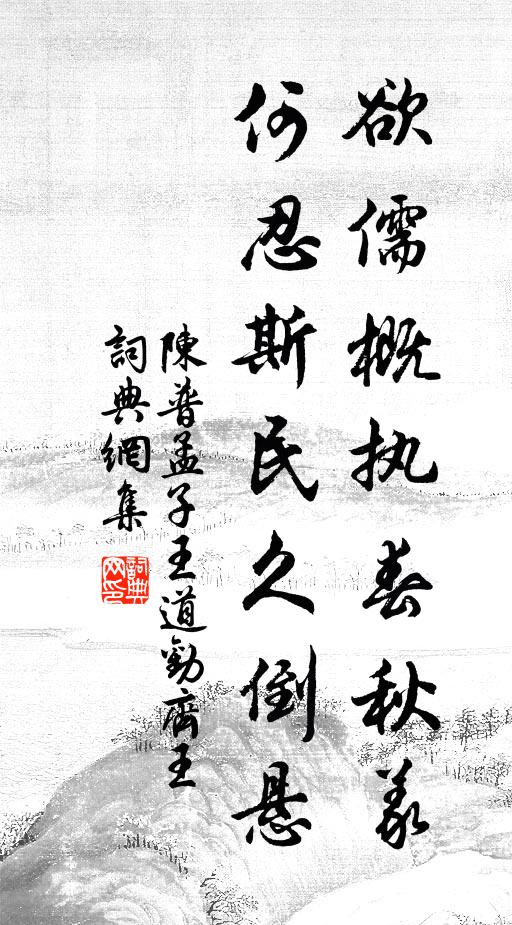 欲儒概执春秋义
何忍斯民久倒悬
陳普孟子王道勸齊王
詞典網集
詞典
网印